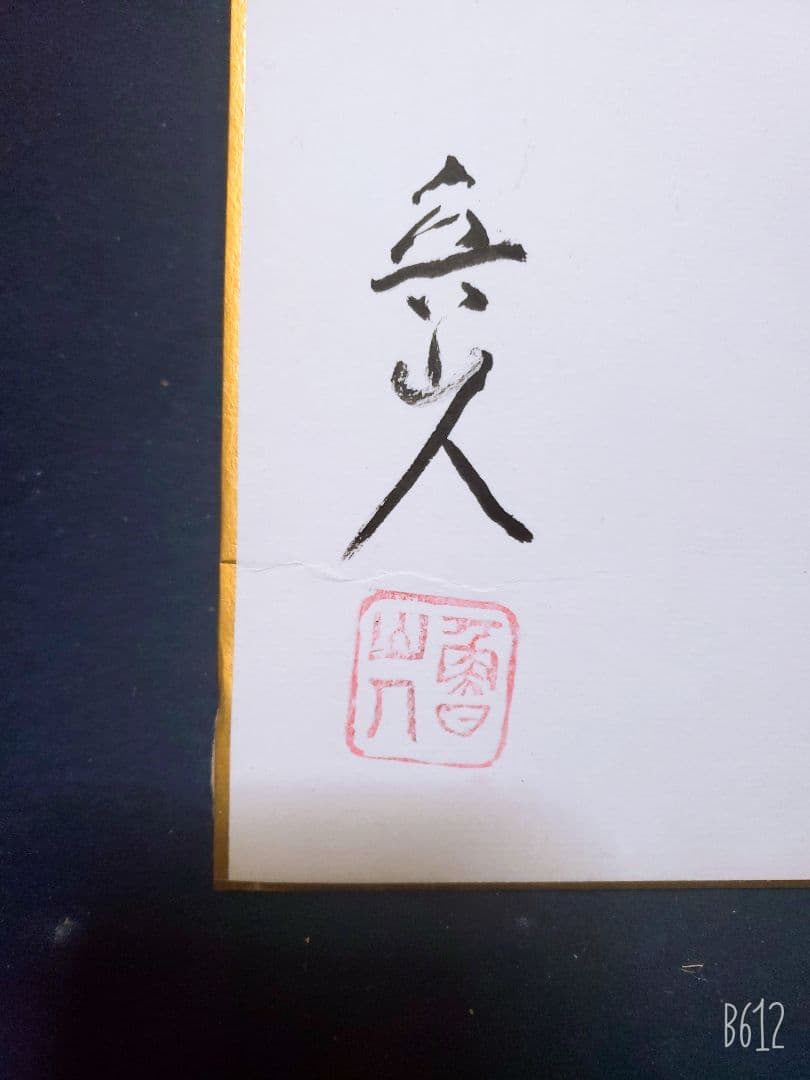 魯山人
魯山人
B612